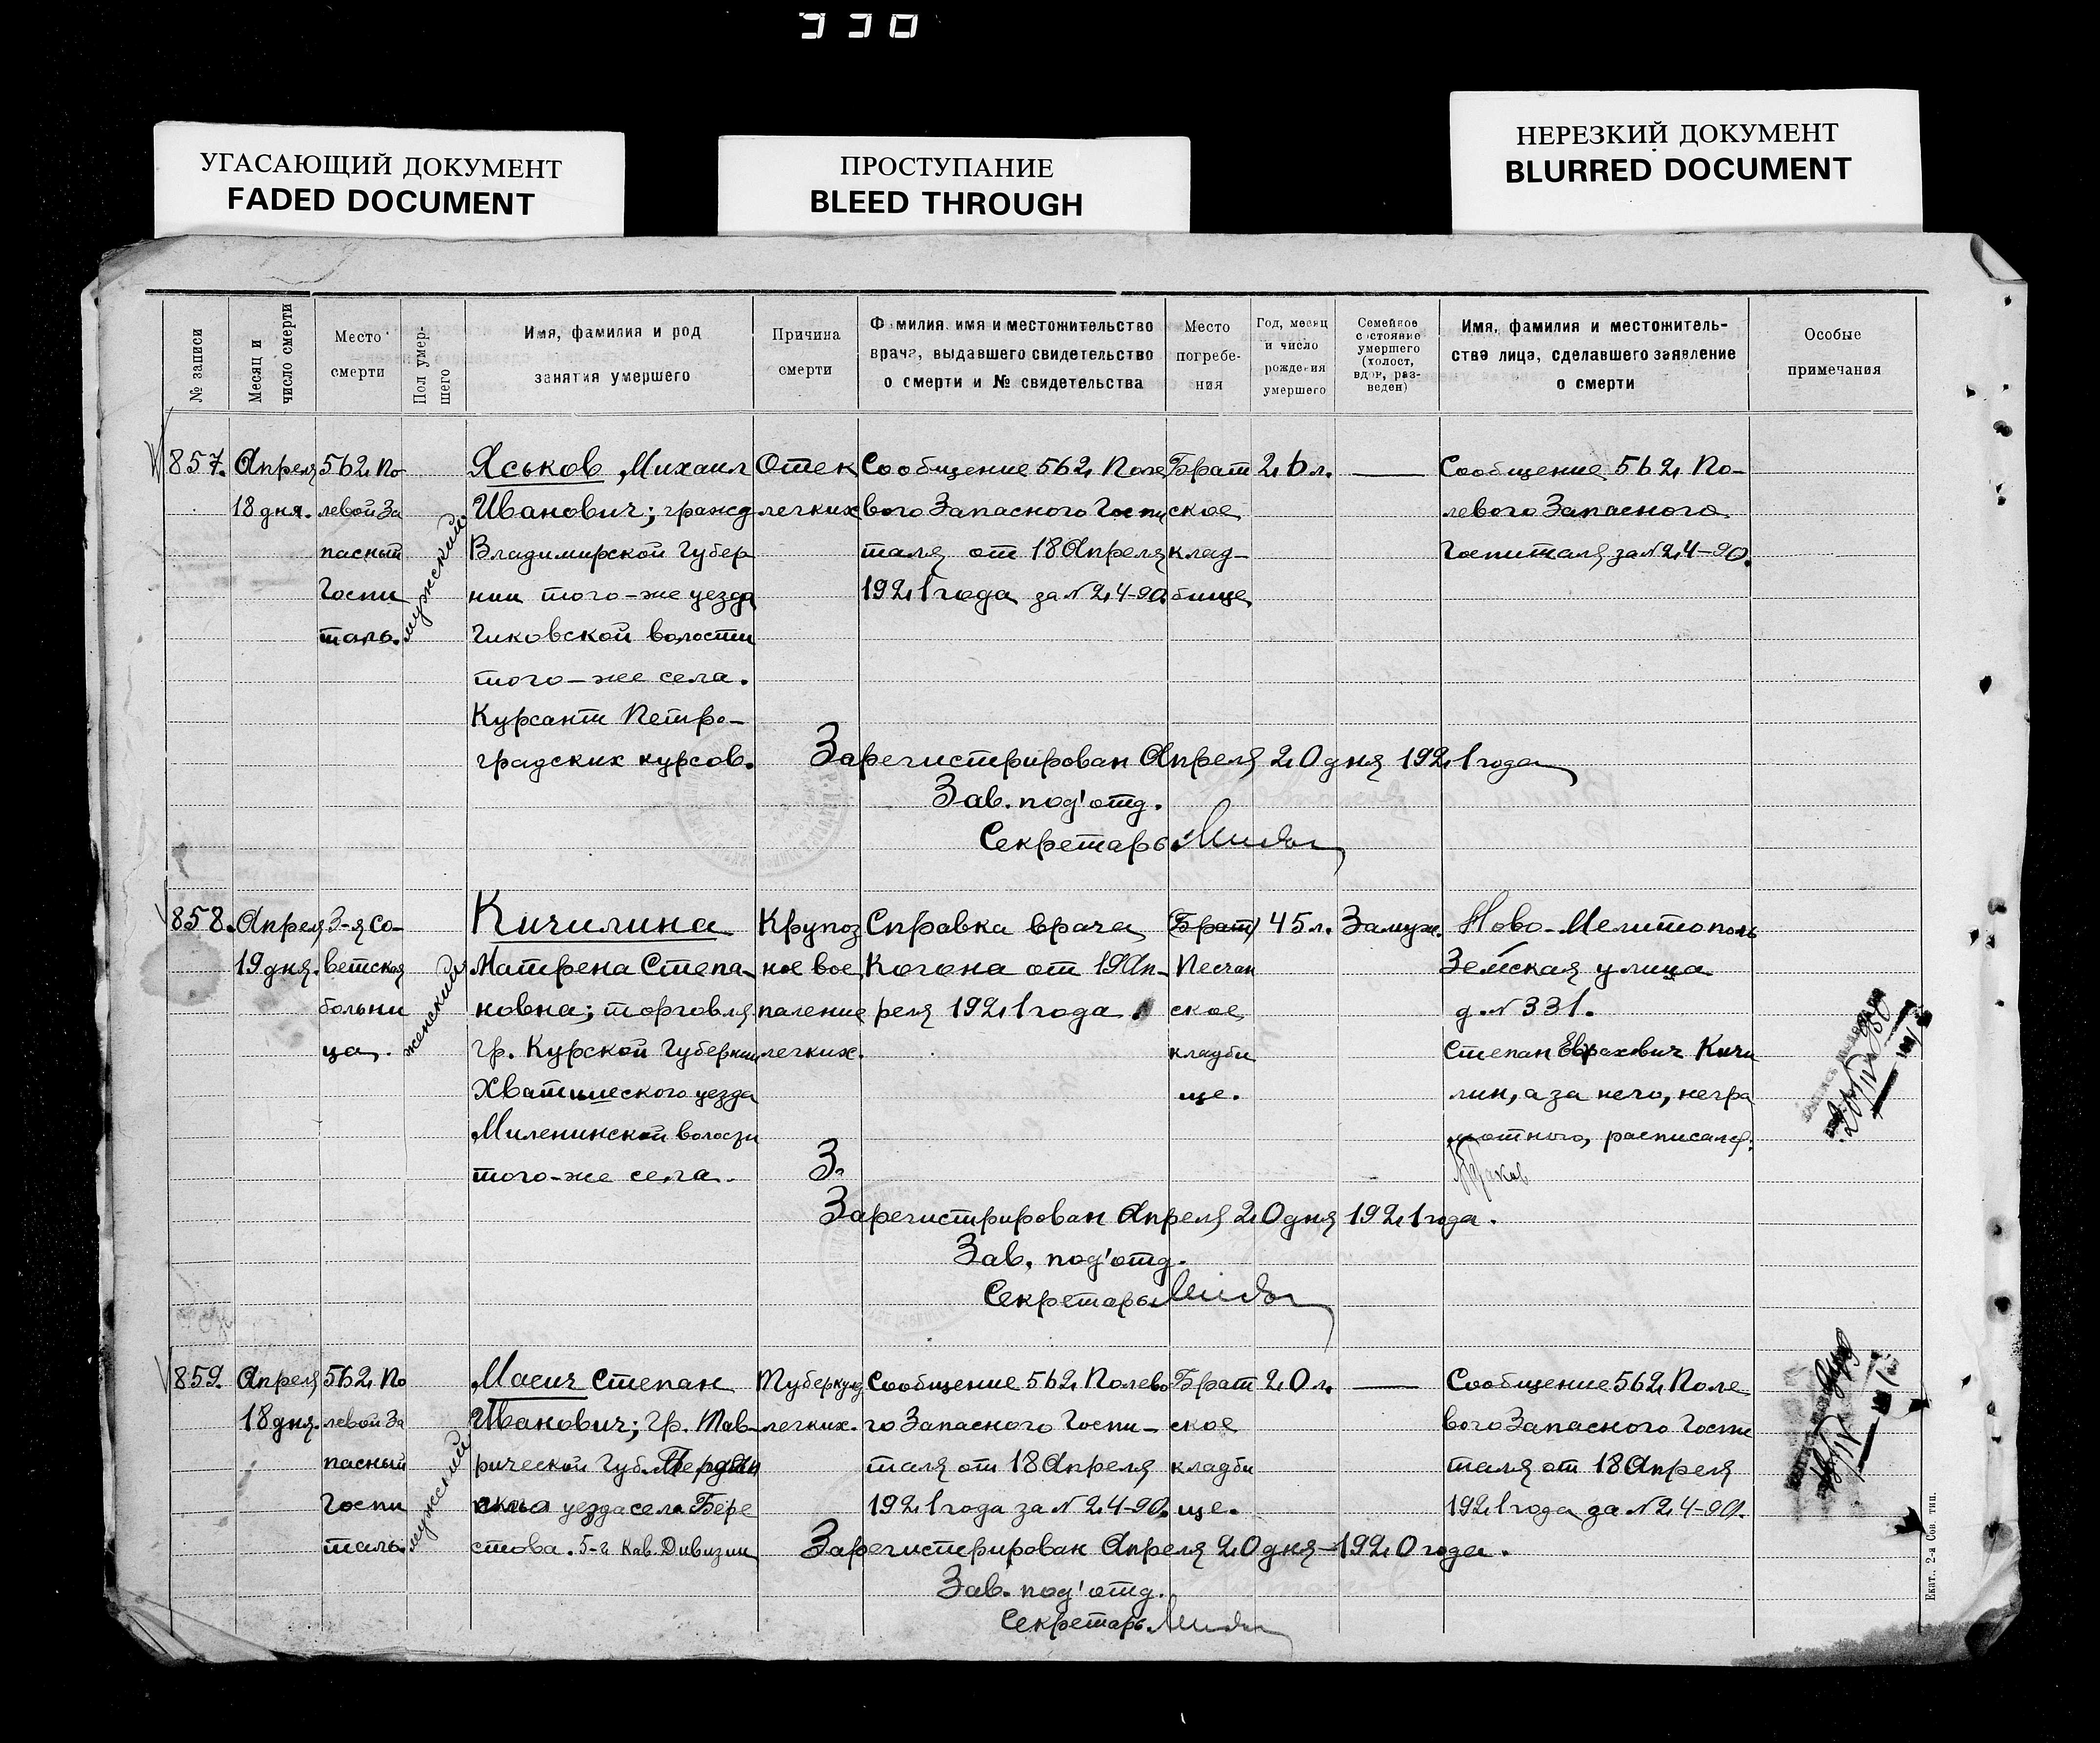 330
УГАСАЮЩИЙ ДОКУМЕНТ
FADED DOCUMENT
ПРОСТУПАНИЕ
BLEED THROUGH
НЕРЕЗКИЙ ДОКУМЕНТ
BLURRED DOCUMENT
№ записи
Месяц и
число смерти
Место
смерти
Пол умер-
шего
Имя, фамилия и род
занятия умершего
Причина
смерти
Фамилия, имя и местожительство
врача, выдавшего свидетельство
о смерти и № свидетельства
Место
погребе-
ния
Год, месяц
и число
рождения
умершего
Семейное
состояние
умершего
(холост,
вдов, раз-
веден)
Имя, фамилия и местожитель-
ства лица, сделавшего заявление
о смерти
Особые
примечания
857.
Апреля
18 дня.
562 По
левой За
пасный
Госпи
таль.
мужский
Яськов Михаил
Иванович; гражд
Владимирской Губер
нии того-же уезда
Чиковской волости
того-же села.
Курсант Петро-
градских курсов.
Отек
легких
Сообщение 562 Поле
вого Запасного Госпи
таля от 18 Апреля
1921 года за № 24-90.
Брат
ское
клад-
бище
26 л.
—
Сообщение 562 По-
левого Запасного
Госпиталя за № 24-90.
Зарегистрирован Апреля 20 дня 1921 года
Зав. под'отд.
Секретарь
858.
Апреля
19 дня.
3-я Со-
ветская
больни
ца.
женский
Кичилина
Матрена Степа-
новна; торговля
гр. Курской Губернии
уезда
Миленинской волости
того-же села.
Крупоз
ное вос
паление
легких.
Справка врача
Когана от 19 Ап-
реля 1921 года.
(Брат)
Песчан
ское
кладби
ще.
45 л.
Замуж.
Ново-Мелитополь
Земская улица
д. № 331.
Степан Кичи
лин, а за него, негра
мотного, расписался:
З.
Зарегистрирован Апреля 20 дня 1921 года.
Зав. под'отд.
Секретарь
859.
Апреля
18 дня.
562 По
левой За
пасный
Госпи
таль.
мужский
Масич Степан
Иванович; Гр. Тав-
рической Губ. Бердян
ского уезда села Бере
стова. 5-г Кав. Дивизии
Туберкулез
легких.
Сообщение 562 Полево
го Запасного Госпи-
таля от 18 Апреля
1921 года за № 24-90.
Брат
ское
кладби
ще.
20 л.
—
Сообщение 562 Поле
вого Запасного Госпи
таля от 18 Апреля
1921 года за № 24-90.
Зарегистрирован Апреля 20 дня - 1920 года.
Зав. под'отд.
Секретарь
Екат., 2-я Сов. тип.